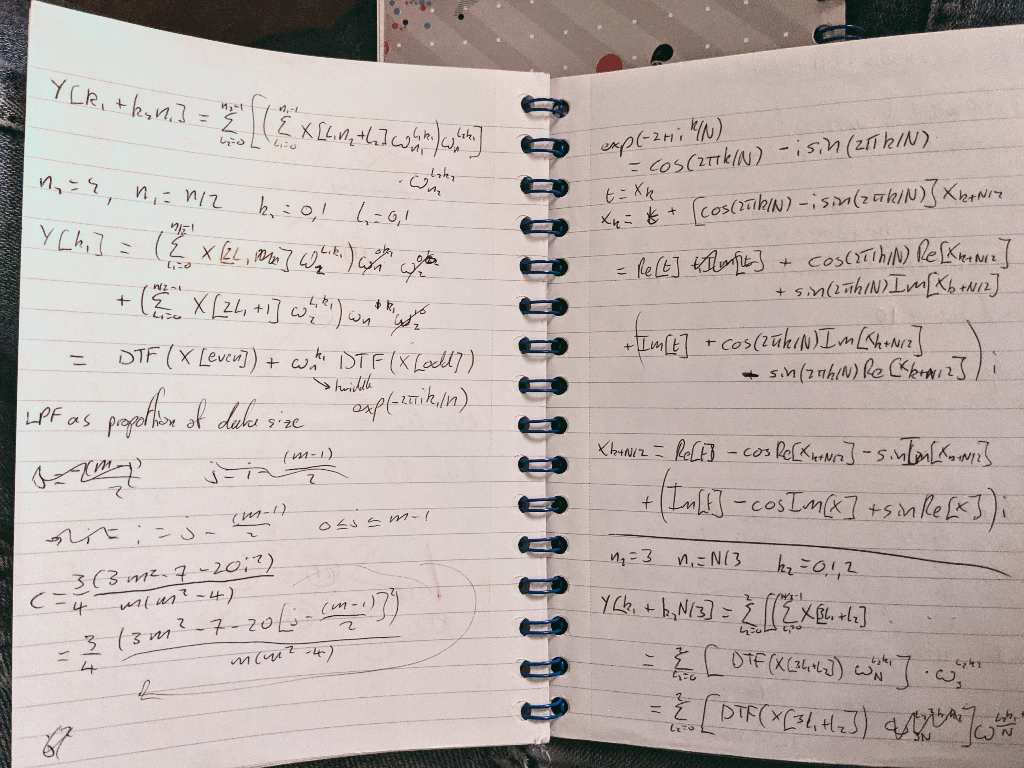 Y[k₁ + k₂n₁] = Σ_{l₂=0}^{n₂-1} [(Σ_{l₁=0}^{n₁-1} X[l₁n₂+l₂] ω_{n₁}^{l₁k₁}) ω_n^{l₂k₁}]
· ω_{n₂}^{l₂k₂}
n₂ = 2, n₁ = n/2 k₂ = 0,1 l₂ = 0,1
Y[k₁] = (Σ_{l₁=0}^{n/2-1} X[2l₁] ω_2^{l₁k₁})
+ (Σ_{l₁=0}^{n/2-1} X[2l₁+1] ω_2^{l₁k₁}) ω_n^{k₁}
= DTF(X[even]) + ω_n^{k₁} DTF(X[odd])
twiddle
exp(-2πik₁/n)
LPF as proportion of data size
j = i - (m-1)/2
i = j - (m-1)/2 0 ≤ j ≤ m-1
C = 3/4 (3m² - 7 - 20i²)/m(m²-4)
= 3/4 (3m² - 7 - 20[j - (m-1)/2]²)/m(m²-4)
exp(-2πi k/N)
= cos(2πk/N) - i sin(2πk/N)
t = x_k
x_k = t + [cos(2πk/N) - i sin(2πk/N)] x_{k+N/2}
= Re[t] + cos(2πk/N) Re[x_{k+N/2}]
+ sin(2πk/N) Im[x_{k+N/2}]
+ (Im[t] + cos(2πk/N) Im[x_{k+N/2}]
- sin(2πk/N) Re[x_{k+N/2}]) i
x_{k+N/2} = Re[t] - cos Re[x_{k+N/2}] - sin Im[x_{k+N/2}]
+ (Im[t] - cos Im[x] + sin Re[x]) i
n₂ = 3 n₁ = N/3 k₂ = 0,1,2
Y[k₁ + k₂N/3] = Σ_{l₂=0}^{2} [(Σ_{l₁=0}^{N/3-1} X[3l₁+l₂] . . .
= Σ_{l₂=0}^{2} [DTF(X[3l₁+l₂]) ω_N^{l₂k₁}] · ω_3^{l₂k₂}
= Σ_{l₂=0}^{2} [DTF(X[3l₁+l₂])